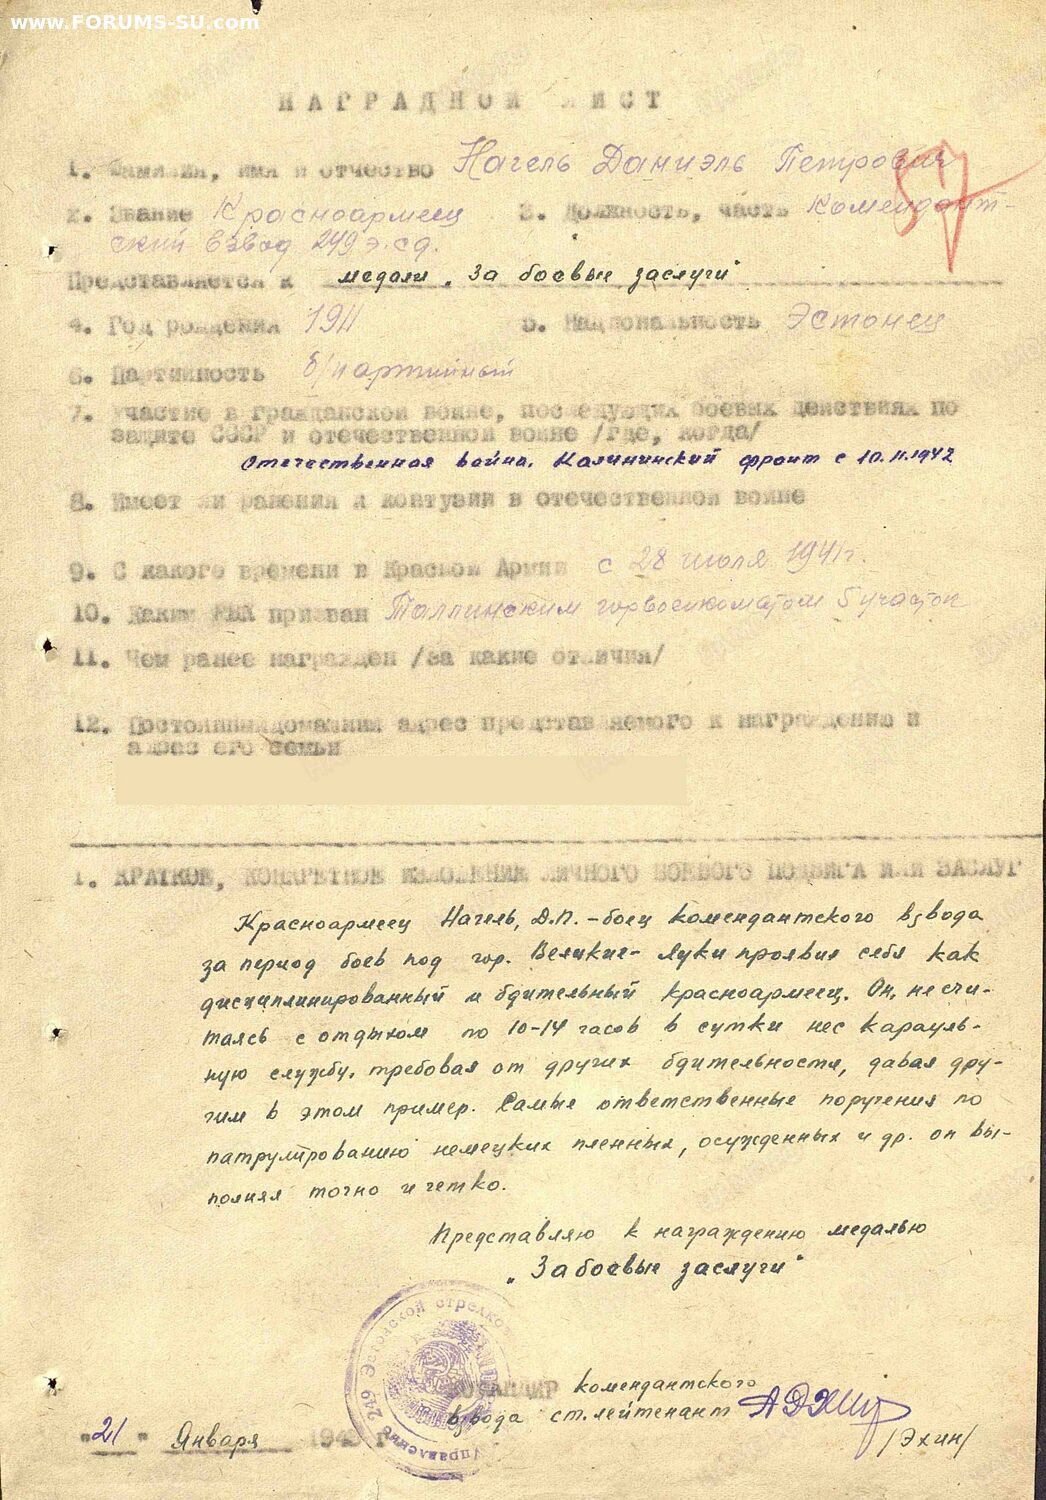 www.FORUMS-SU.com
НАГРАДНОЙ ЛИСТ
57
1. Фамилия, имя и отчество Нагель Даниэль Петрович
2. Звание Красноармеец 3. Должность, часть Комендант-
ский взвод 249 э.сд.
Представляется к медали „За боевые заслуги"
4. Год рождения 1911 5. Национальность Эстонец
6. Партийность б/партийный
7. Участие в гражданской войне, последующих боевых действиях по
защите СССР и отечественной войне /где, когда/
Отечественная война. Калининский фронт с 10.11.1942
8. Имеет ли ранения и контузии в отечественной войне
9. С какого времени в Красной Армии с 28 июля 1941г.
10. Каким РВК призван Таллинским горвоенкоматом 5 участок
11. Чем ранее награжден /за какие отличия/
12. Постоянный домашний адрес представляемого к награждению и
адрес его семьи
1. КРАТКОЕ, КОНКРЕТНОЕ ИЗЛОЖЕНИЕ ЛИЧНОГО БОЕВОГО ПОДВИГА ИЛИ ЗАСЛУГ
Красноармеец Нагель, Д.П. - боец комендантского взвода
за период боев под гор. Великие-Луки проявил себя как
дисциплинированный и бдительный красноармеец. Он, не счи-
таясь с отдыхом по 10-14 часов в сутки нес карауль-
ную службу, требовал от других бдительности, давая дру-
гим в этом пример. Самые ответственные поручения по
патрулированию немецких пленных, осужденных и др. он вы-
полнял точно и четко.
Представляю к награждению медалью
„За боевые заслуги"
249 Эстонской стрелков
Управление
КОМАНДИР комендантского
взвода ст. лейтенант
/Эхин/
"21" Января 1943 г